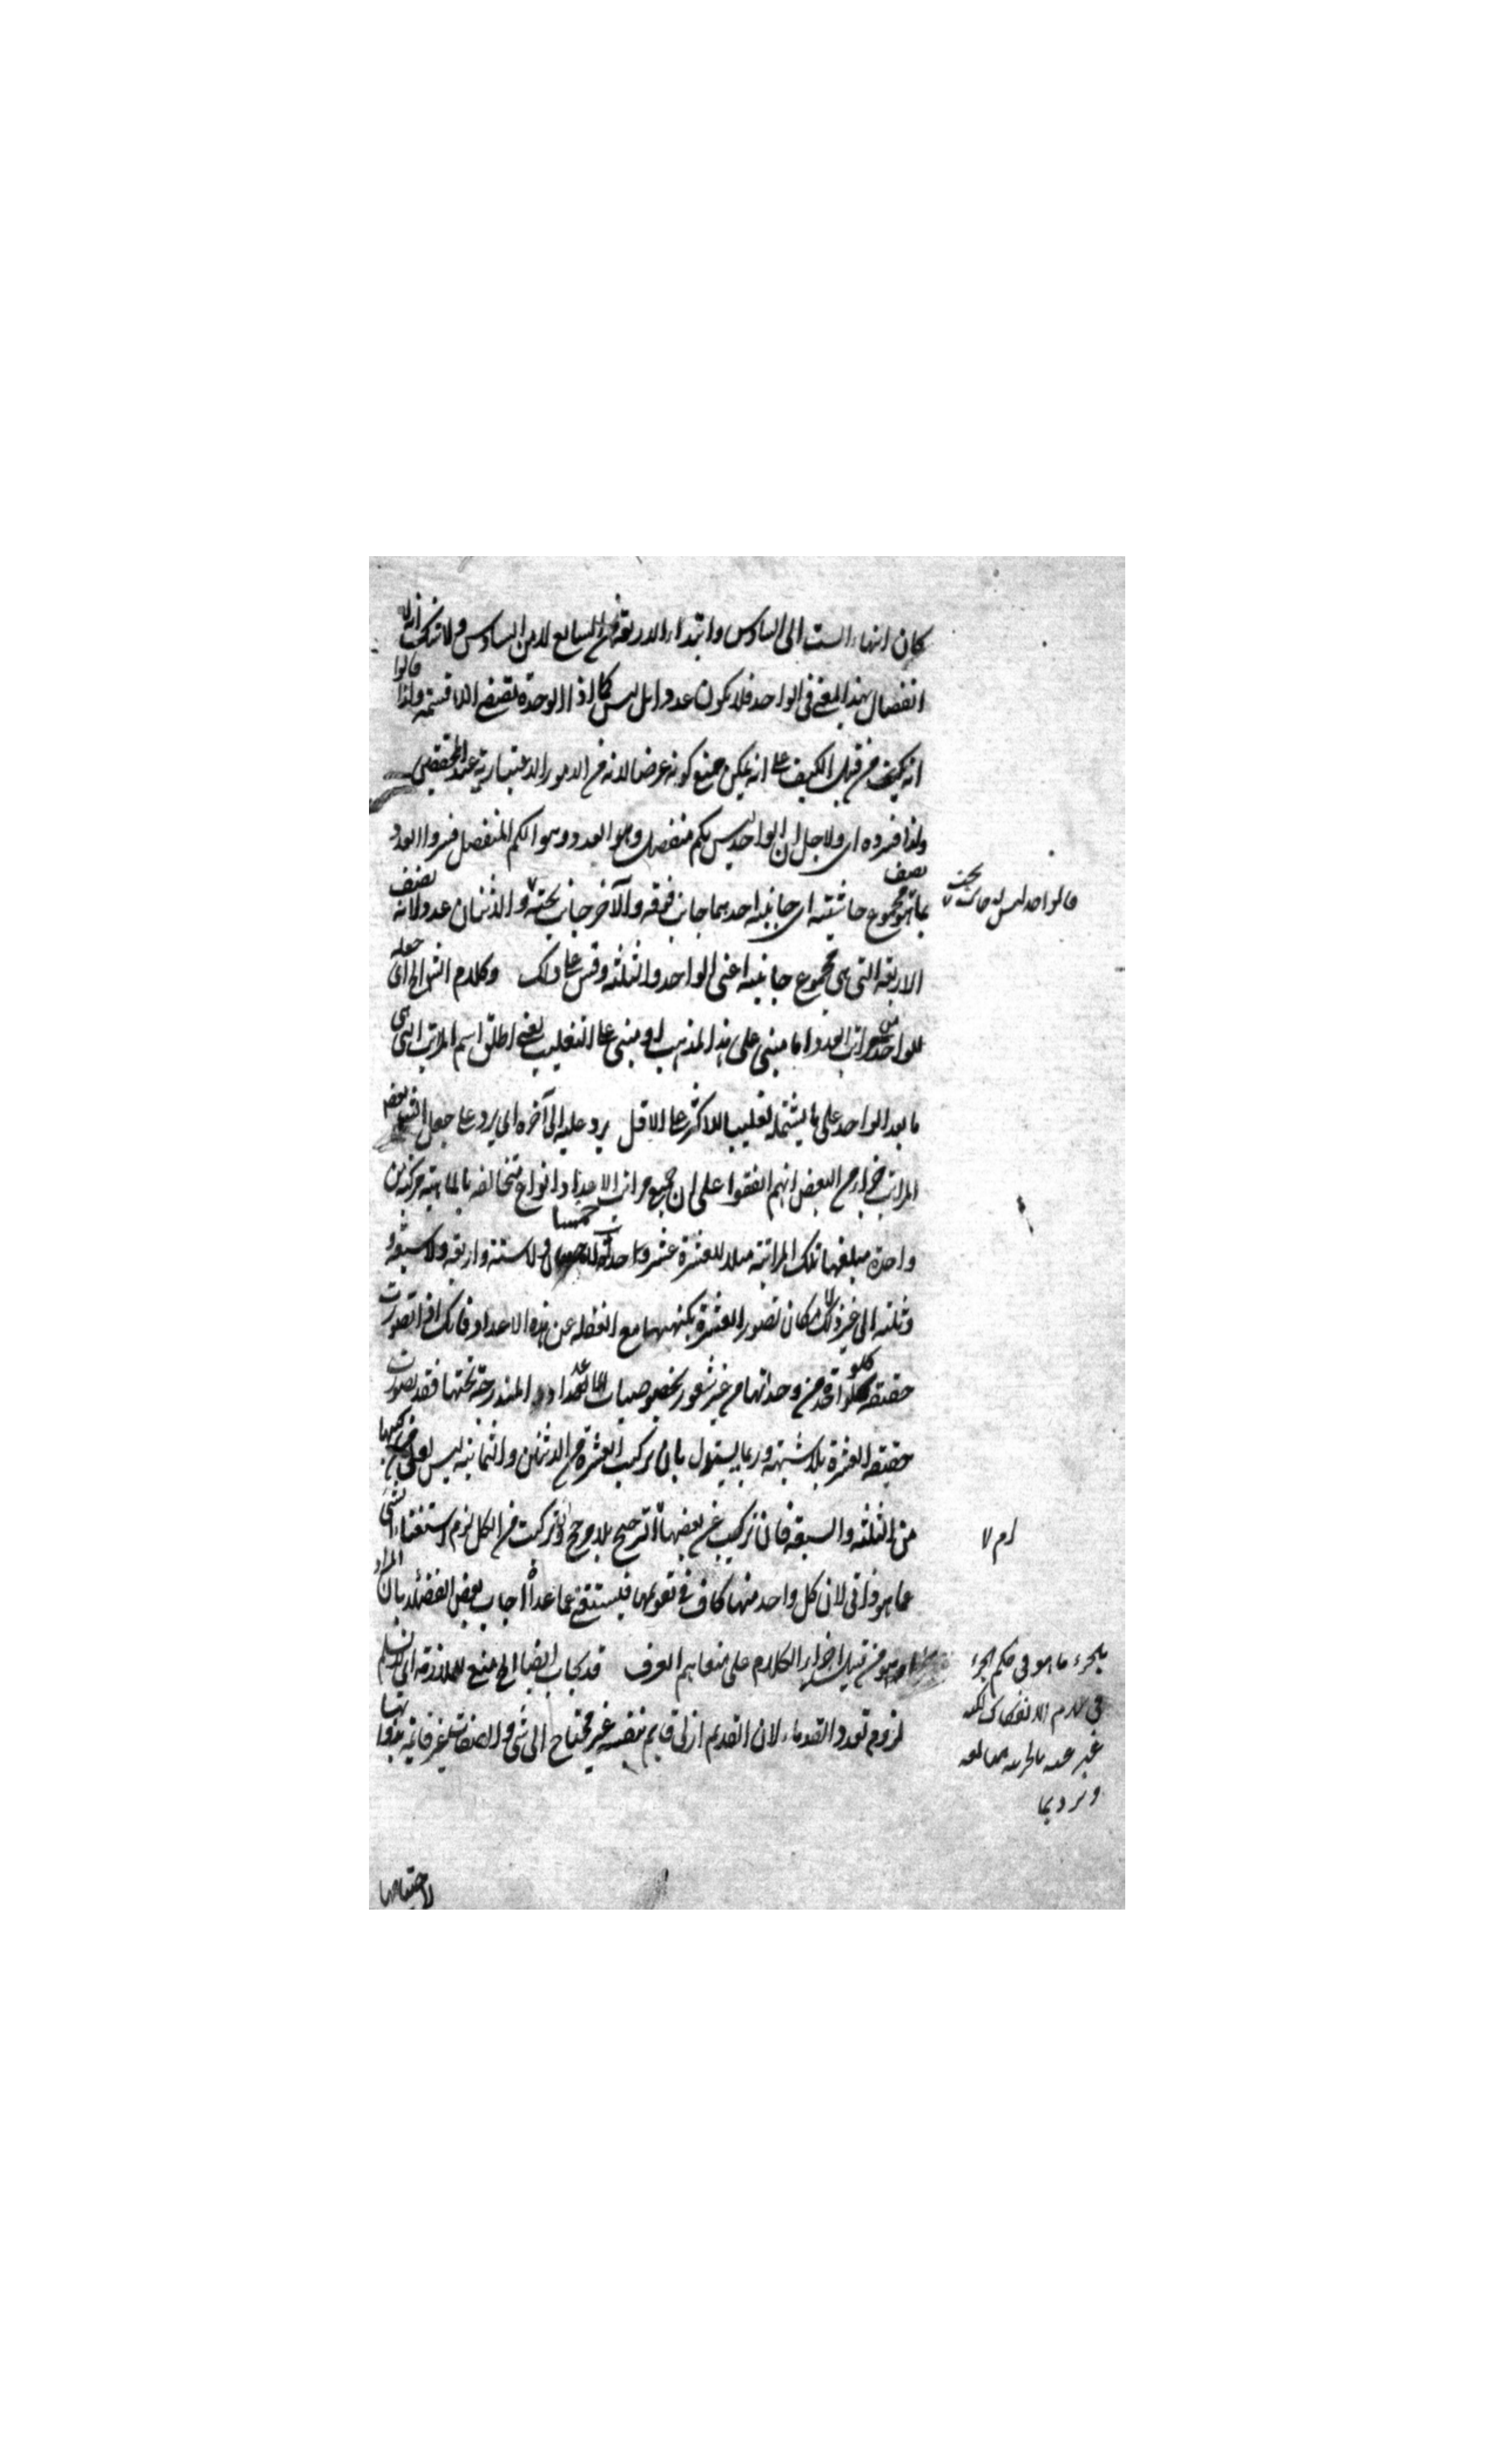 كان انتهاء الست الى السادس وابتداء الاربعة من السابع لا من السادس ولا شك انه لا
انفصال بهذا المعنى فى الواحد فلا يكون عددا بل ليس كما اذ الوحدة تقتضى اللا قسمة ولذا قالوا
انه كيف من قبيل الكيف على انه يمكن منع كونه عرضا لانه من الامور الاعتبارية عند المحققين
ولذا فسروه اى ولاجل ان الواحد ليس بكم منفصل وهو العدد وهو الكم المنفصل فسروا العدد
بما هو نصف مجموع حاشيتيه اى جانبيه احدهما جانب فوقه والآخر جانب تحته والاثنان عدد لانه نصف
الاربعة التى هى مجموع جانبيه اعنى الواحد والثلثة وقس على ذلك وكلام الشارح اى جعله
للواحد من مراتب العدد اما مبنى على هذا المذهب او مبنى على التغليب يعنى اطلق اسم المراتب التى هى
ما بعد الواحد على ما يشتمله تغليبا للاكثر على الاقل يرد عليه الى آخره اى يرد على جعل الشارح بعض
المراتب جزأ من البعض انهم اتفقوا على ان جميع مراتب الاعداد انواع متخالفة بالماهية مركبة من
واحدة مبلغها تلك المرتبة مثلا للعشرة عشر وحدات لا خمسا و لا ستة واربعة ولا سبعة و
وثلثة الى غير ذلك لامكان تصور العشرة بكنهها مع الغفلة عن هذه الاعداد فانك اذا تصورت
حقيقة كل واحدة من وحداتها من غير شعور بخصوصيات الاعداد المندرجة تحتها فقد تصورت
حقيقة العشرة بلا شبهة وربما يستدل بان تركيب العشرة من الاثنين والثمانية ليس اولى من تركيبها
من الثلثة والسبعة فان تركبت عن بعضها لزم الترجيح بلا مرجح وان تركبت من الكل لزم استغناء الشئ
عما هو ذاتى لان كل واحد منها كاف فى تقويمها فيستغنى عما عداه اجاب بعض الفضلاء بان المراد
من قبيل اجزاء الكلام على متفاهم العرف قد يجاب ايضا اى بمنع الملازمة اى لا نسلم
لزوم تعدد القدماء لان القديم ازلى قايم بنفسه غير محتاج الى شئ والصفات غير قائمة بذواتها
لاحتياجها
فالواحد ليس له جانب تحت
بالجزء ما هو فى حكم الجزء
فى عدم الانفكاك لكنه